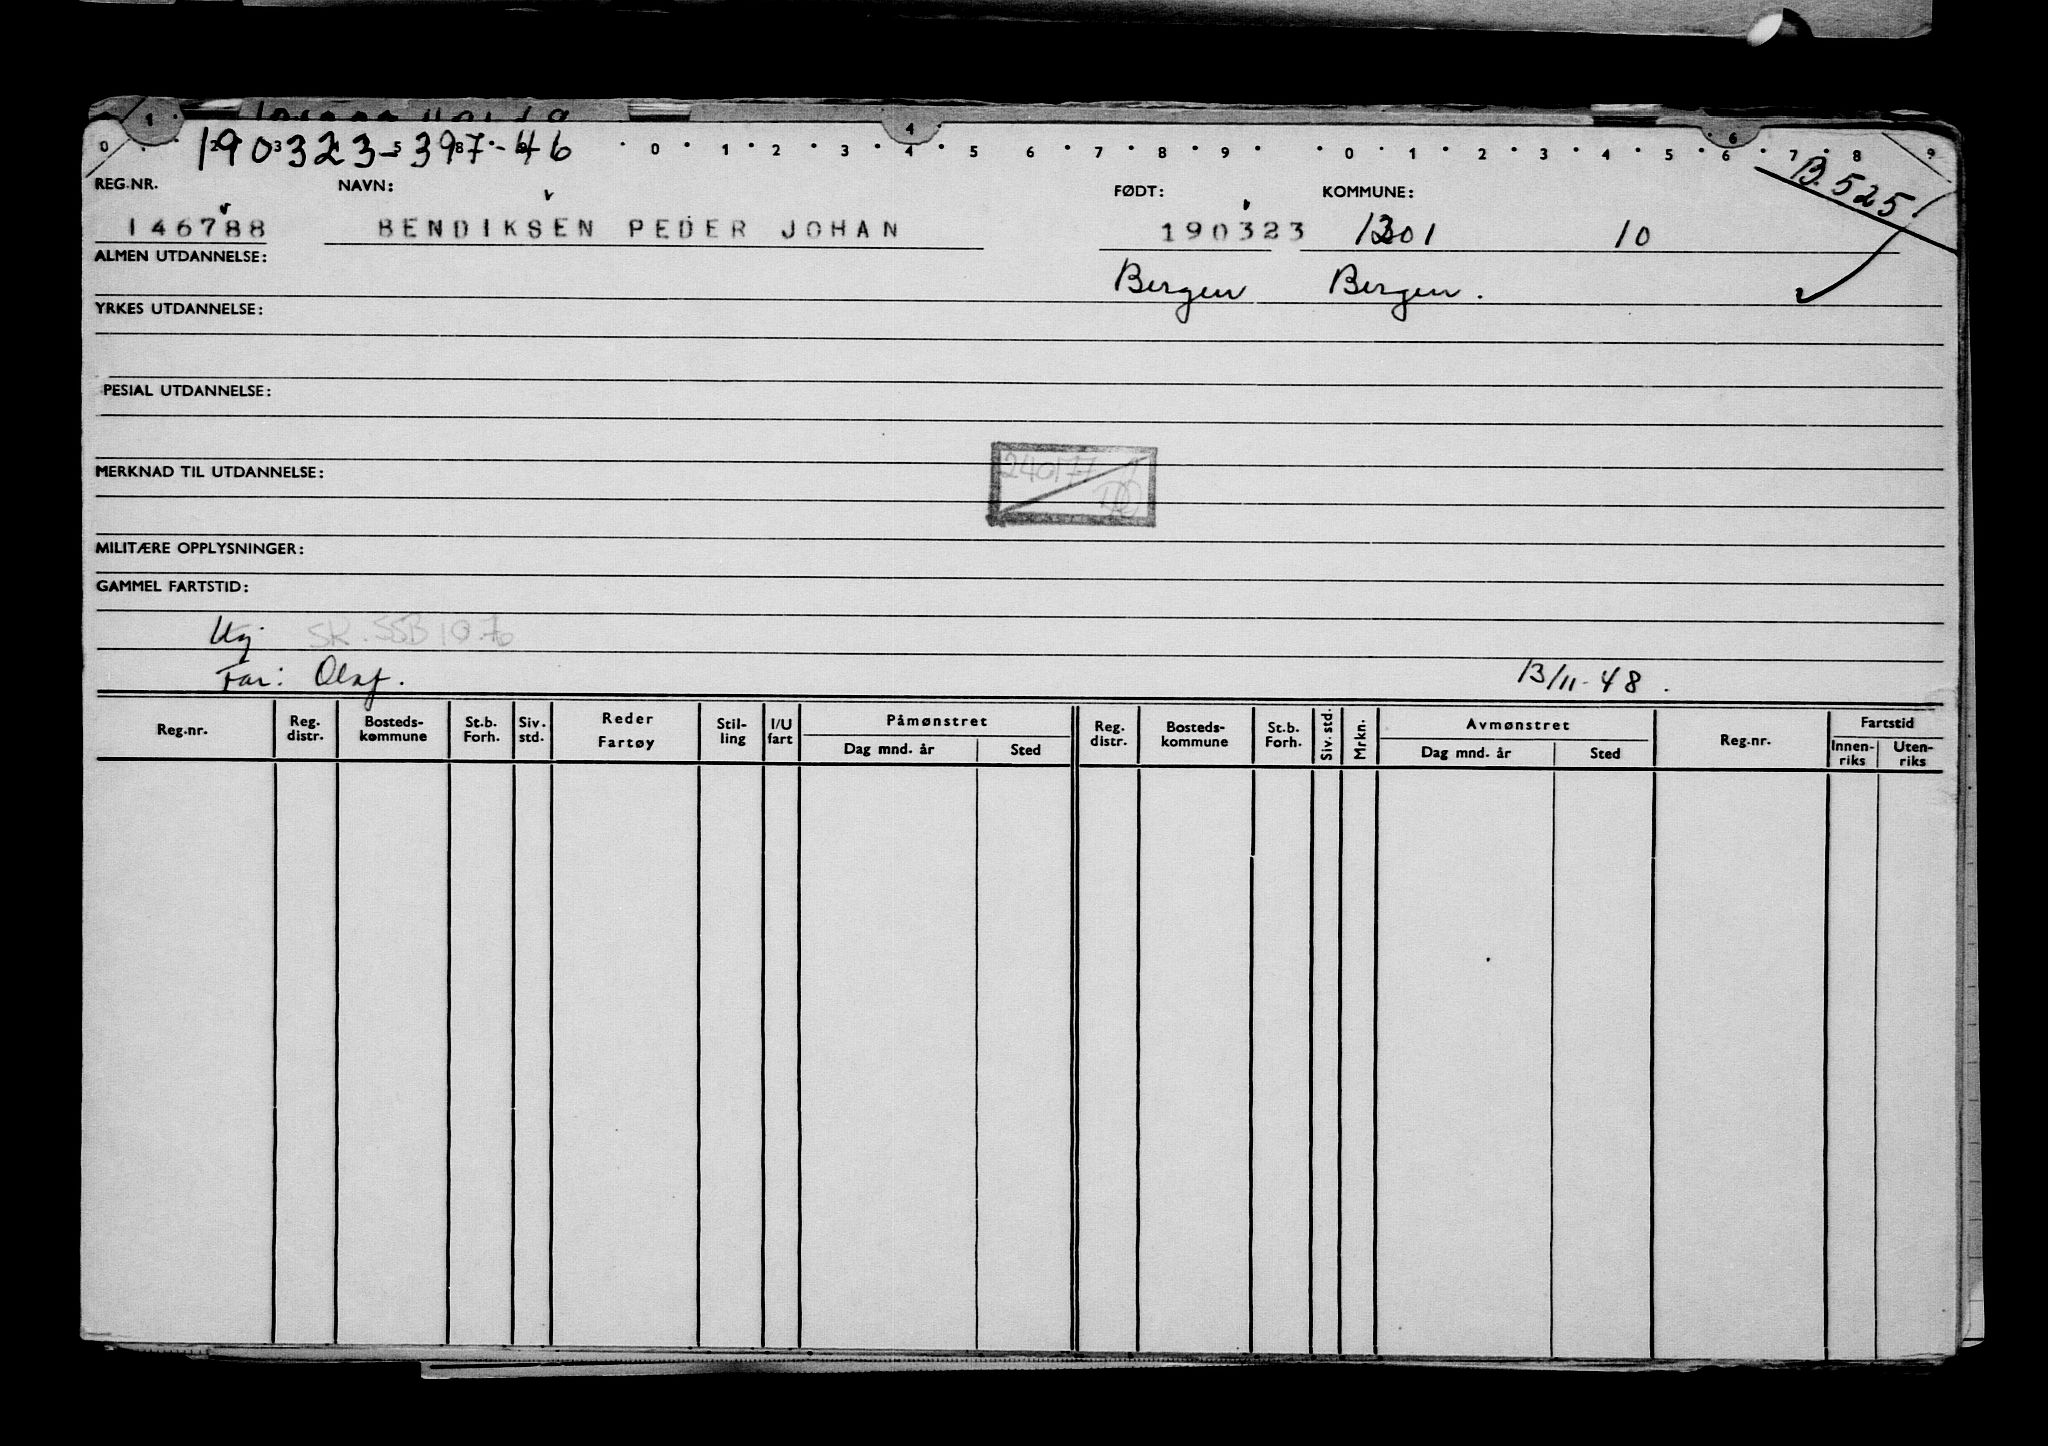 190323-39746
0 1 2 3 4 5 6 7 8 9 0 1 2 3 4 5 6 7 8 9
B. 525
REG.NR. NAVN: FØDT: KOMMUNE:
146788 BENDIKSEN PEDER JOHAN 190323 1301 10
ALMEN UTDANNELSE: Bergen Bergen.
YRKES UTDANNELSE:
PESIAL UTDANNELSE:
240177
MERKNAD TIL UTDANNELSE:
MILITÆRE OPPLYSNINGER:
GAMMEL FARTSTID:
Ug SK. SSB 1076
Far: Olaf. 13/11-48.
Reg.nr. Reg. distr. Bosteds-kommune St.b. Forh. Siv. std. Reder Fartøy Stil-ling I/U fart Påmønstret Dag mnd. år Sted Reg. distr. Bosteds-kommune St.b. Forh. Siv. std. Mrkn. Avmønstret Dag mnd. år Sted Reg.nr. Fartstid Innen-riks Uten-riks